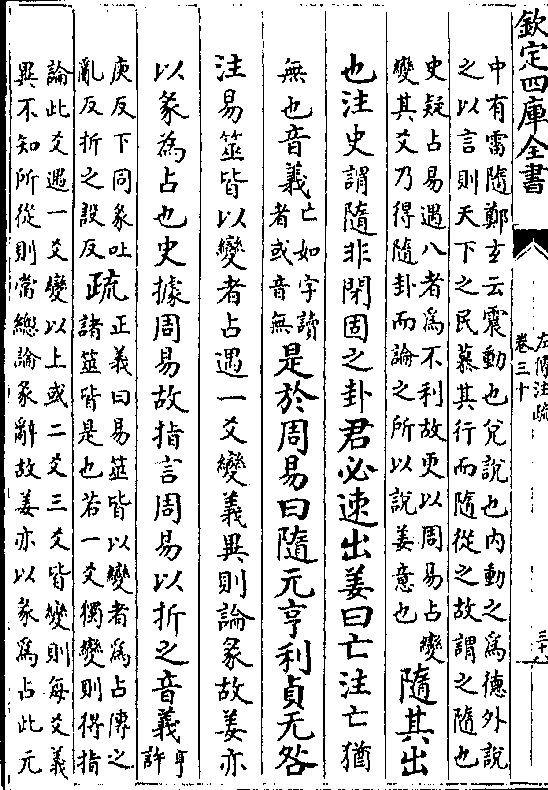 欽定四庫全書
左傳注疏
卷三十
三十
中有雷隨鄭𤣥云震動也兌說也内動之爲德外說
之以言則天下之民慕其行而隨從之故謂之隨也
史疑占易遇八者爲不利故更以周易占變
變其爻乃得隨卦而論之所以說姜意也
隨其出
也注史謂隨非閉固之卦君必速出姜曰亡注亡猶
無也音義
亡如字讀
者或音無
是於周易曰隨元亨利貞无咎
注易筮皆以變者占遇一爻變義異則論彖故姜亦
以彖為占也史據周易故指言周易以折之音義
亨
許
庚反下同彖吐
亂反折之設反
疏
正義曰易筮皆以變者爲占傳之
諸筮皆是也若一爻獨變則得指
論此爻遇一爻變以上或二爻三爻皆變則每爻義
異不知所從則當總論彖辭故姜亦以彖爲占此元